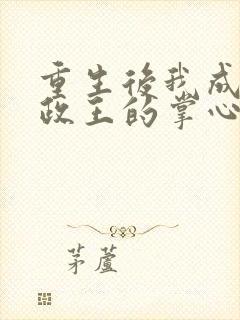 重生後我成
政王的掌心
茅蘆